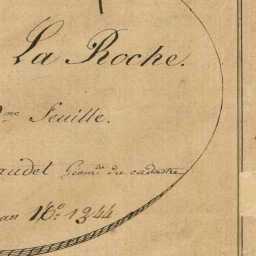 La Roche.
me Feuille.
audel Géom. du cadastre
an 1344